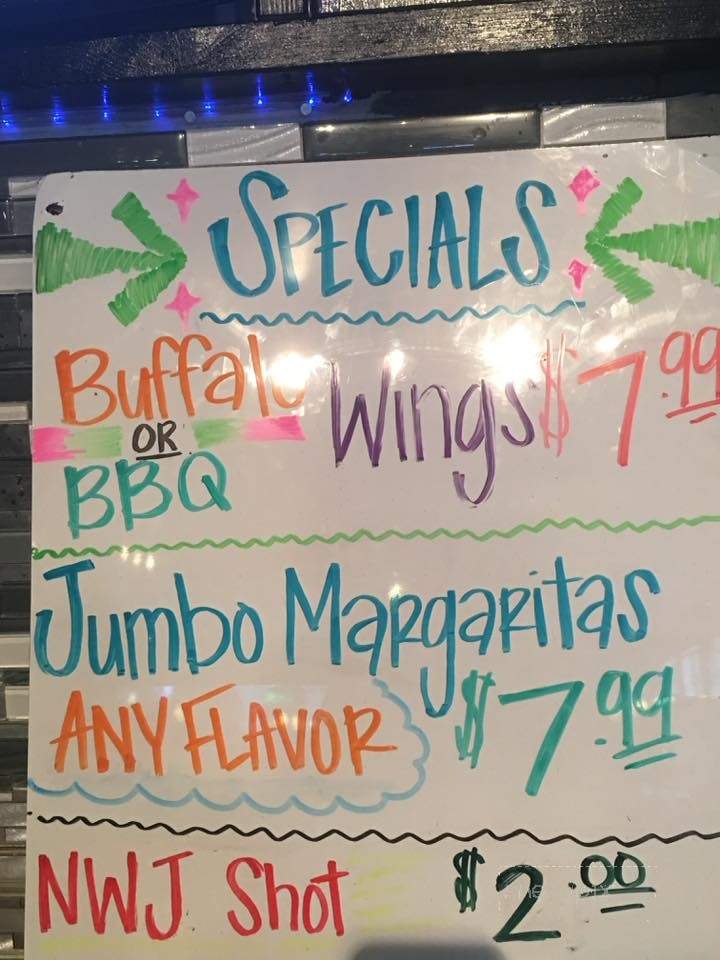 SPECIALS
Buffalo
OR
BBQ
Wings $7.99
Jumbo Margaritas
ANY FLAVOR $7.99
NWJ Shot $2.00